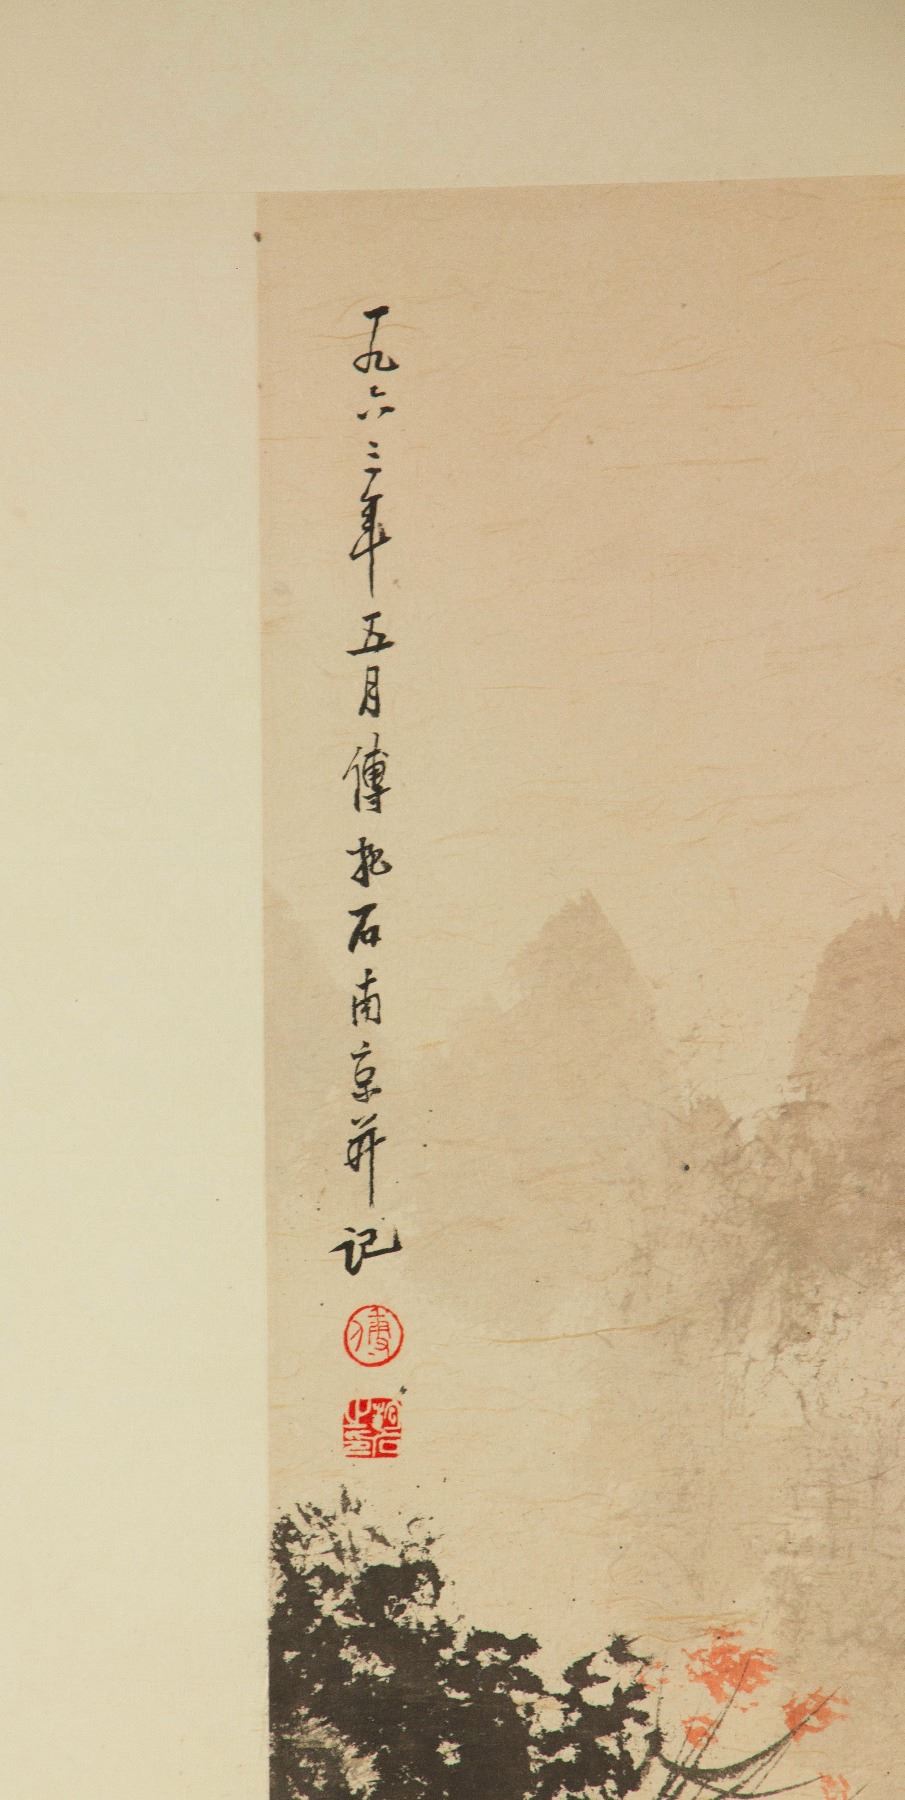 一九六三年五月傅抱石南京并记
傅
抱石之印